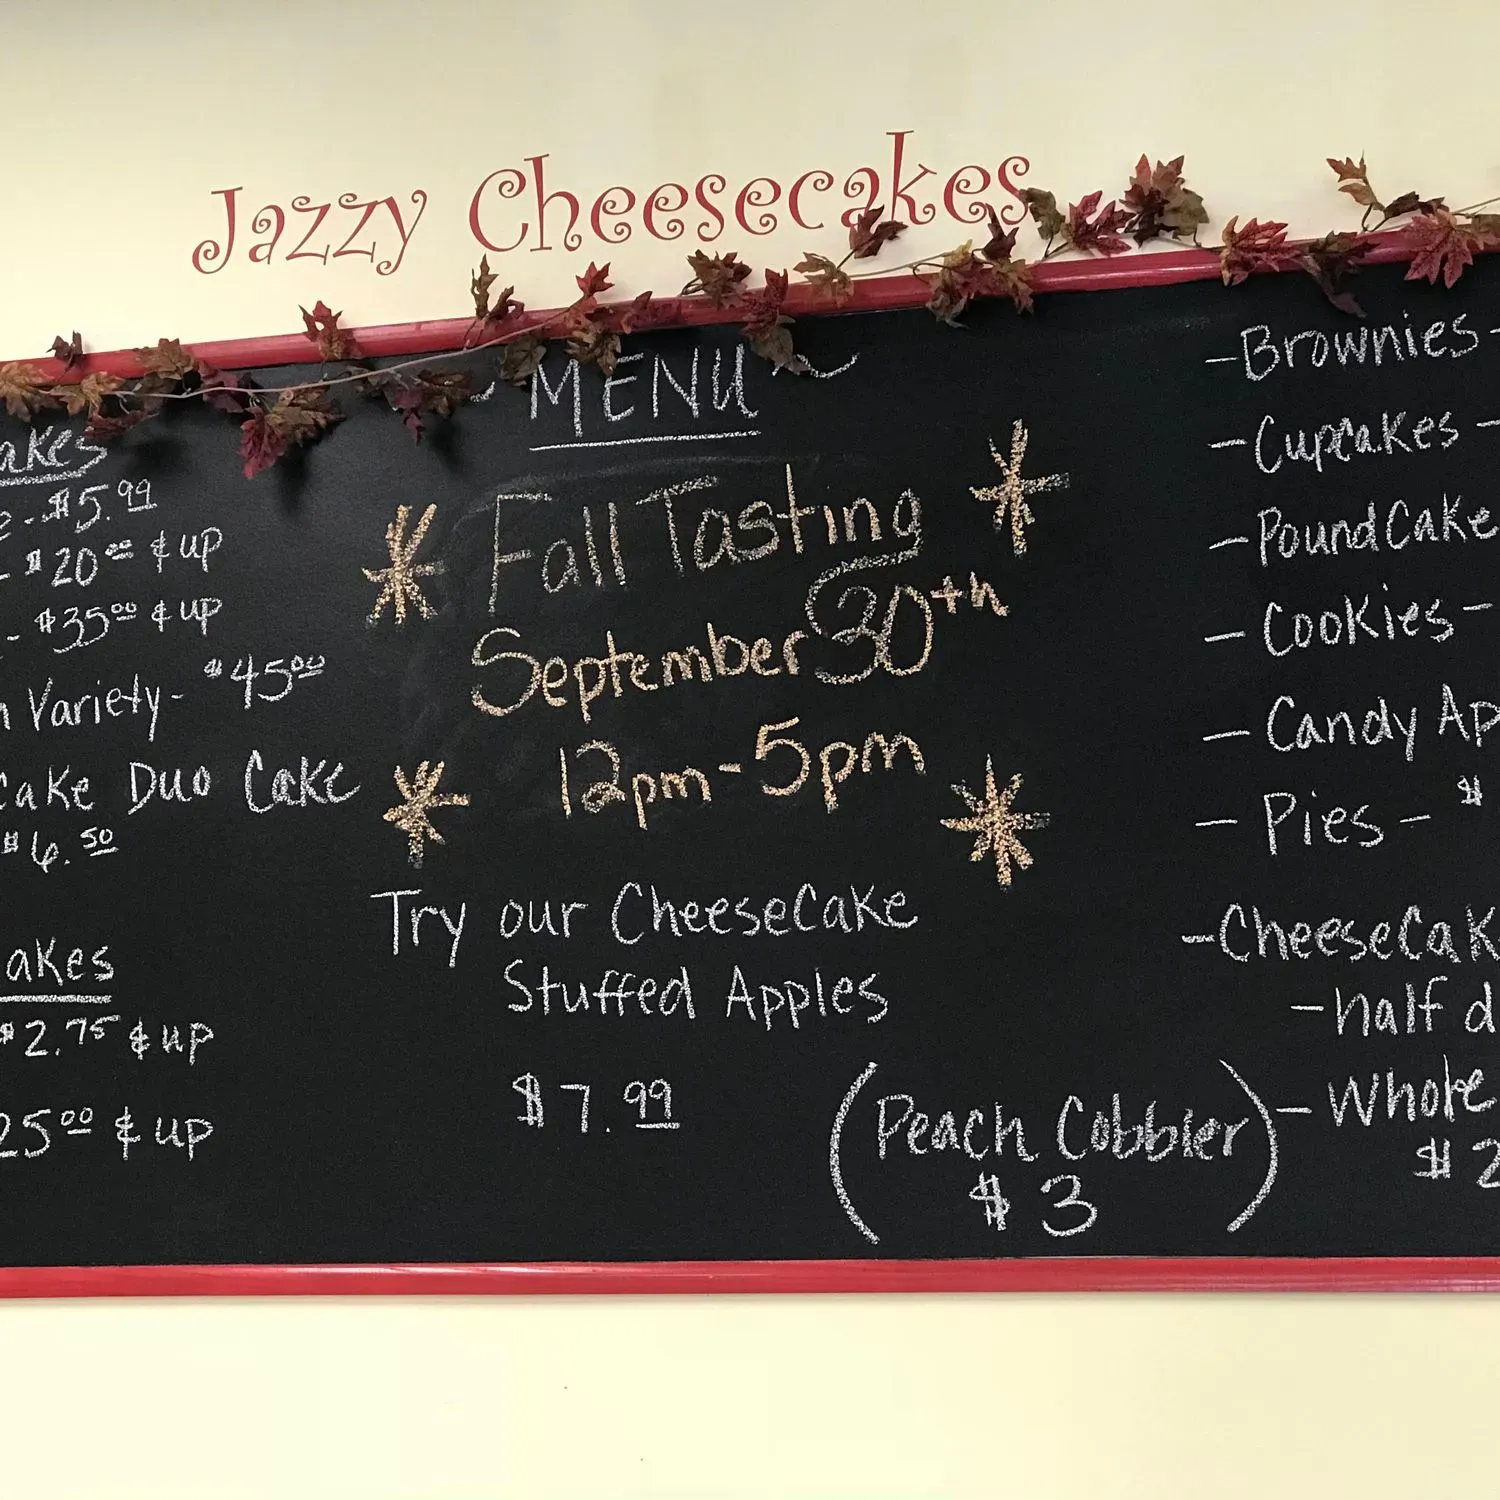 Jazzy Cheesecakes
MENU
$5.99
$20.00 & up
- $35.00 & up
Variety - $45.00
Cake Duo Cake
$6.50
$2.75 & up
25.00 & up
Fall Tasting
September 30th
12pm - 5pm
Try our CheeseCake
Stuffed Apples
$7.99
(Peach Cobbler)
$3
- Brownies -
- Cupcakes -
- PoundCake
- Cookies -
- Candy Ap
- Pies - $
- CheeseCak
- half d
- Whole
$2